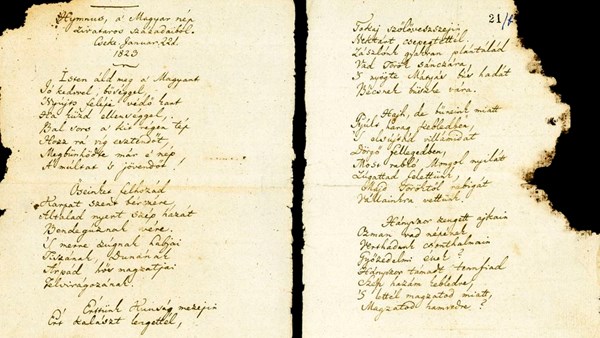 Hymnus, a' Magyar nép
zivataros századaiból.
Cseke Januar. 22d.
1823
Isten áld meg a' Magyart
Jó kedvvel, bőséggel,
Nyujts feléje védő kart
Ha küzd ellenséggel,
Bal sors a' kit régen tép
Hozz rá víg esztendőt,
Megbünhödte már e' nép
A' multat 's jövendőt!
Őseinket felhozád
Kárpát szent bérczére,
Általad nyert szép hazát
Bendegúznak vére.
'S merre zúgnak habjai
Tiszának, Dunának
Árpád hős magzatjai
Felvirágzának.
Értünk Kunság mezején
Ért kalászt lengettél,
21
Tokaj szőlővesszein
Nektárt csepegtettél.
Zászlónk gyakran plántálád
Vad Török sánczára,
'S nyögte Mátyás bús hadát
Bécsnek büszke vára.
Hajh, de bűneink miatt
Gyúlt harag kebledben,
'S elsújtád villámidat
Dörgő fellegedben,
Most rabló Mongol nyilát
Zúgattad felettünk,
Majd Töröktől rabigát
Vállainkra vettünk.
Hányszor zengett ajkain
Ozman vad népének
Vert hadunk csonthalmain
Győzedelmi ének!
Hányszor támadt tennfiad
Szép hazám kebledre,
'S lettél magzatod miatt,
Magzatod hamvvedre?